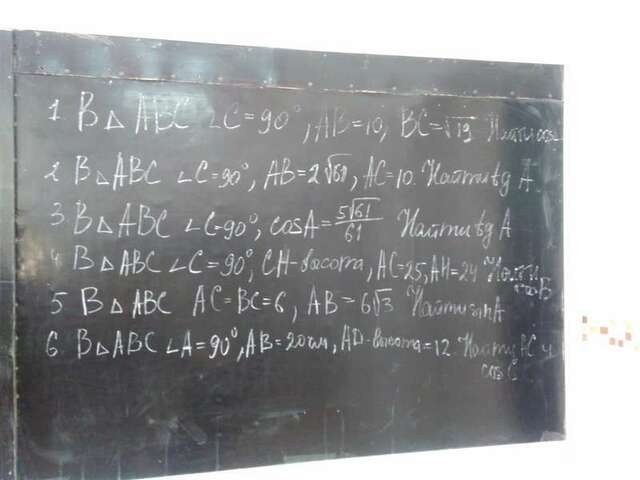 1 В △ ABC ∠C = 90°, AB = 10, BC = √19 Найти cos
2 В △ABC ∠C = 90°, AB = 2√61, AC = 10. Найти tg A
3. В △ ABC ∠C = 90°, cosA = 5√61/61 Найти tg A
4 В △ ABC ∠C = 90°, CH - высота, AC = 25, AH = 24 Найти B
5 В △ ABC AC = BC = 6, AB = 6√3 Найти sin A
6 В △ABC ∠A = 90°, AB = 20 см, AD - высота = 12. Найти AC и cos C